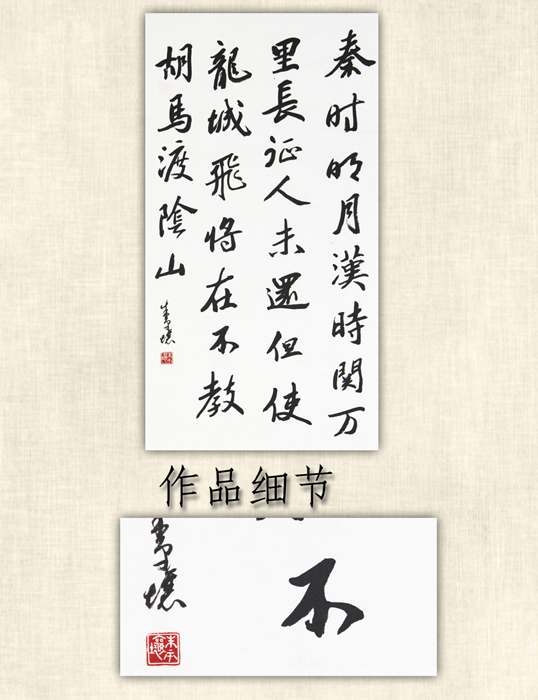 秦时明月漢時関万
里長征人未還但使
龍城飛将在不教
胡馬渡陰山
作品细节
不